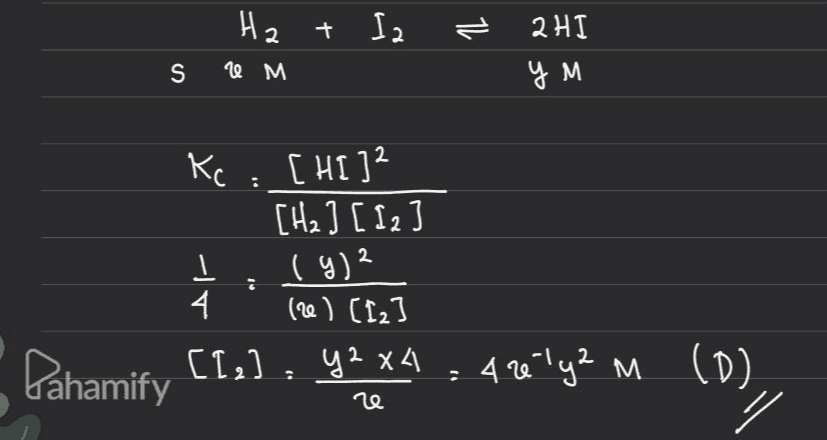 H₂ + I₂ ⇌ 2HI
S x M y M
Kc = [HI]²
[H₂] [I₂]
1/4 = (y)²
(x) [I₂]
[I₂] = y² x 4 / x = 4x⁻¹y² M (D)
Pahamify